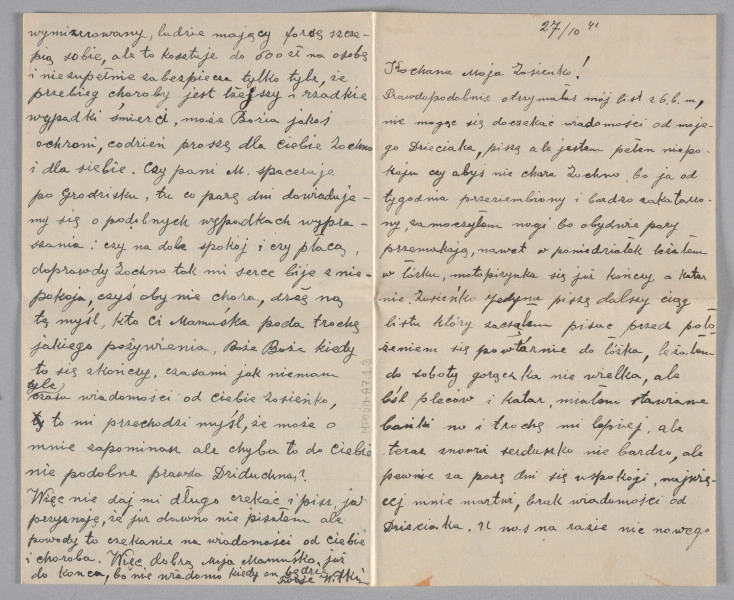 27/10 41
Kochana Moja Zosieńko!
Prawdopodobnie otrzymałaś mój list z 6.b.m,
nie mogąc się doczekać wiadomości od moje-
go Dzieciaka, piszę ale jestem pełen niepo-
koju czy abyś nie chora Zochno, bo ja od
tygodnia przeziembiony i bardzo zakatarzo-
ny, zamoczyłem nogi bo obydwie pary
przemakają, nawet w poniedziałek leżałem
w łóżku, motopirynka się już kończy a katar
nie. Zosieńko jedyna piszę dalszy ciąg
listu który zacząłem pisać przed poło
żeniem się powtórnie do łóżka, leżałem
do soboty gorączka nie wielka, ale
ból pleców i katar, miałem stawiane
bańki no i trochę mi lepiej, ale
teraz znowu serduszko nie bardzo, ale
pewnie za parę dni się uspokoji, najwię-
cej mnie martwi, brak wiadomości od
Dzieciaka. U nas na razie nic nowego
wymizerowany, ludzie mający forsę szcze-
pią sobie, ale to kosztuje do 600 zł na osobę
i niezupełnie zabezpiecza tylko tyle, że
przebieg choroby jest lżejszy i rzadkie
wypadki śmierci, może Bozia jakoś
ochroni, codzień proszę dla Ciebie Zochno
i dla siebie. Czy pani M. spaceruje
po Grodzisku, tu co parę dni dowiaduje-
my się o podobnych wypadkach wypra-
szania i czy na dole spokój i czy płacą,
doprawdy Zochno tak mi serce bije z nie-
pokoja, czyś oby nie chora, drżę na
tę myśl, kto Ci Mamuśka poda trochę
jakiego pożywienia, Boże Boże kiedy
to się skończy, czasami jak niemam
tyle
czasu wiadomości od Ciebie Zosieńko,
to mi przechodzi myśl, że może o
mnie zapominasz ale chyba to do Ciebie
nie podobne prawda Dziduchna?
Więc nie daj mi długo czekać i pisz, ja
przyznaję, że już dawno nie pisałem ale
powody to czekanie na wiadomości od Ciebie
i choroba. Więc dobra Moja Mamuśko, już
do końca, bo nie wiadomo kiedy on będzie